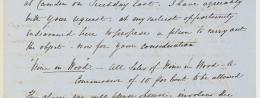 at Camden on Tuesday last. I have agreeably
with your request, at my earliest opportunity
endeavoured here to propose a plan to carry out
the object - now for your consideration
"Wine in Wood" - All Sales of Wine in Wood - A
Commission of 10 per Cent to be allowed
the